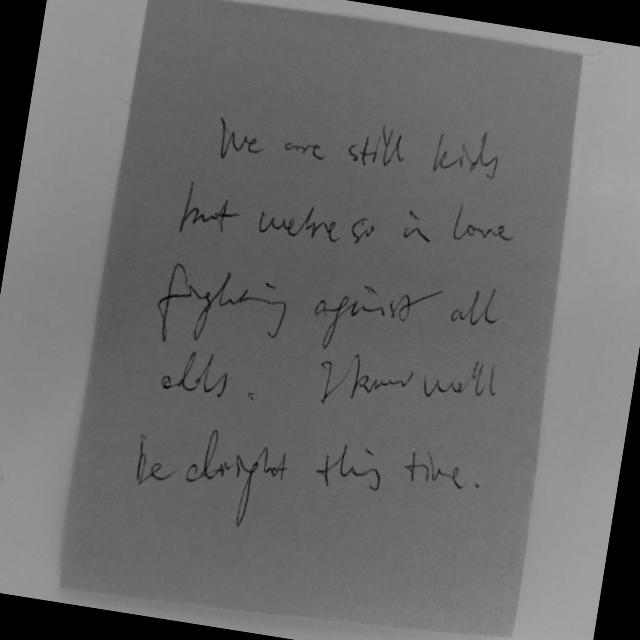 We are still kids
but we're so in love
fighting against all
odds. I know we'll
be alright this time.